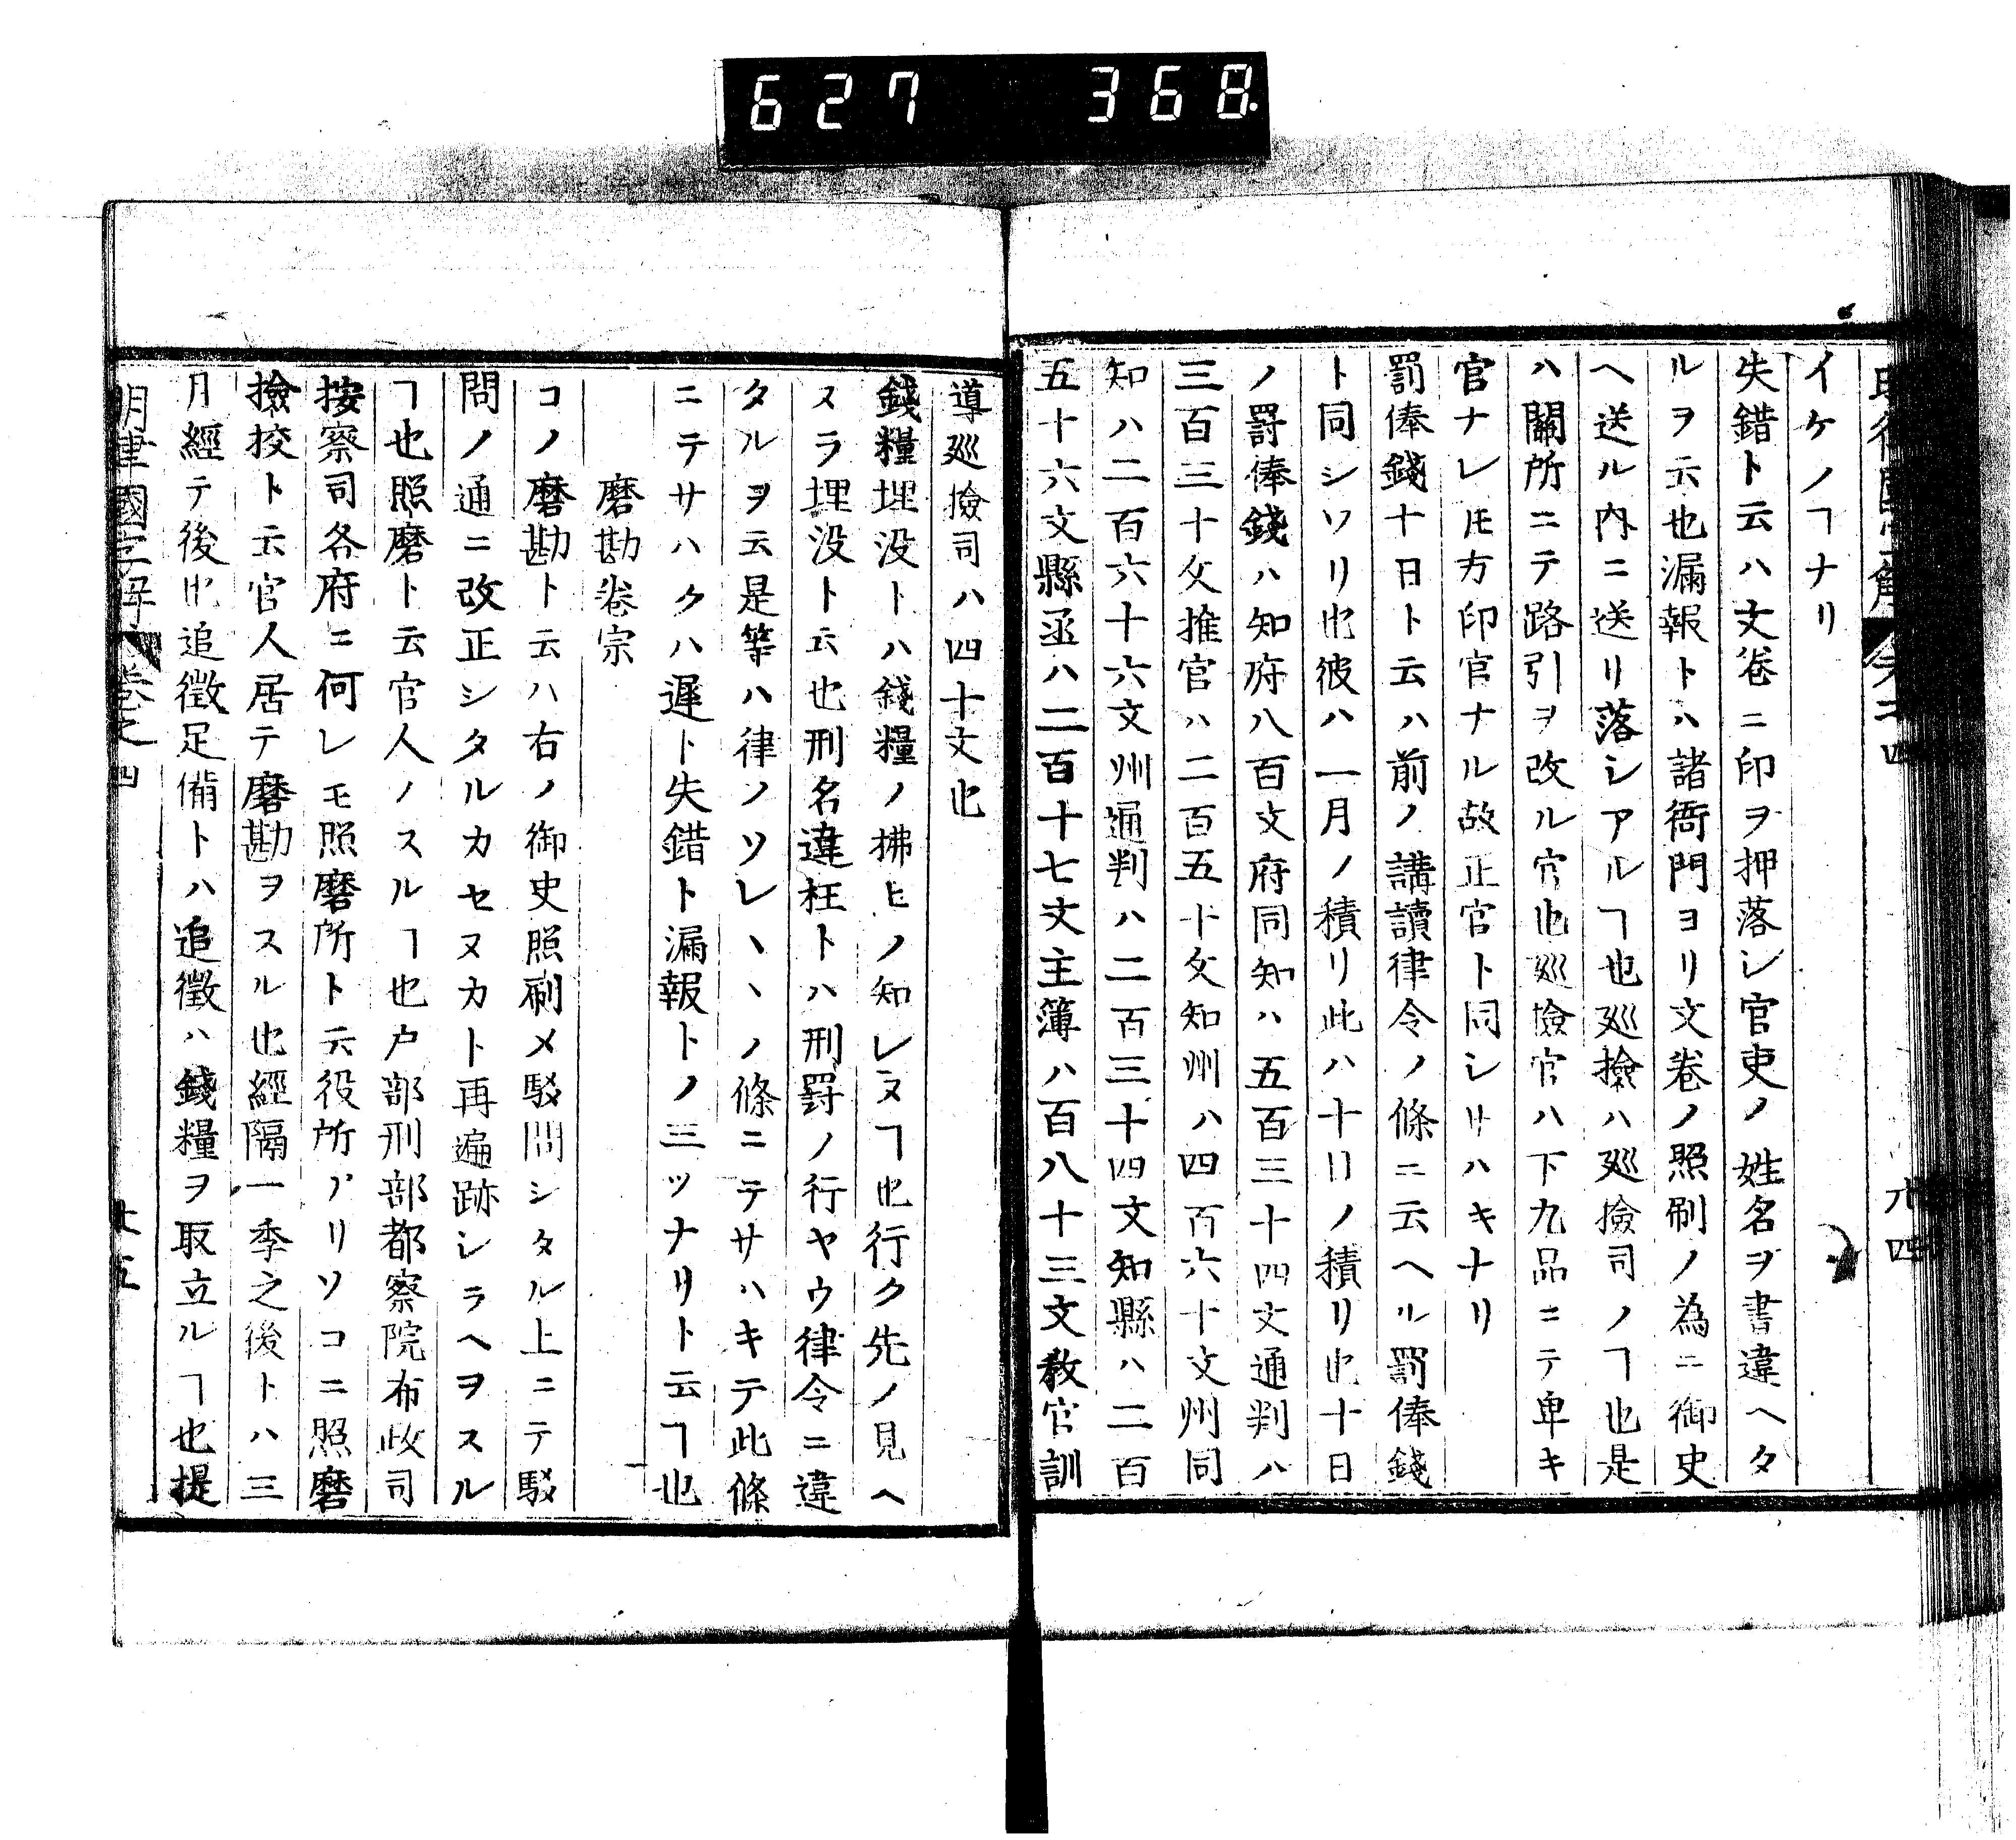 627 368
イケノヿナリ
失錯ト云ハ文巻ニ印ヲ押落シ官吏ノ姓名ヲ書違ヘタ
ルヲ云也漏報トハ諸衙門ヨリ文巻ノ照刷ノ為ニ御史
ヘ送ル内ニ送リ落シアルヿ也廵撿ハ廵撿司ノヿ也是
ハ關所ニテ路引ヲ改ル官也廵撿官ハ下九品ニテ卑キ
官ナレ𪜈方印官ナル故正官ト同シサハキナリ
罰俸錢十日ト云ハ前ノ講讀律令ノ條ニ云ヘル罰俸錢
ト同シソリ也彼ハ一月ノ積リ此ハ十日ノ積リ也十日
ノ罸俸錢ハ知府八百文府同知ハ五百三十四文通判ハ
三百三十文推官ハ二百五十文知州ハ四百六十文州同
知ハ二百六十六文州通判ハ二百三十四文知縣ハ二百
五十六文縣丞ハ二百十七文主簿ハ百八十三文教官訓
導廵撿司ハ四十文也
錢糧埋没トハ錢糧ノ拂ヒノ知レヌヿ也行ク先ノ見ヘ
スラ埋没ト云也刑名違枉トハ刑罸ノ行ヤウ律令ニ違
タルヲ云是等ハ律ノソレ〱ノ條ニテサハキテ此條
ニテサハクハ遲ト失錯ト漏報トノ三ツナリト云ヿ也
磨勘巻宗
コノ磨勘ト云ハ右ノ御史照刷メ駁問シタル上ニテ駁
問ノ通ニ改正シタルカセヌカト再遍跡シラヘヲスル
ヿ也照磨ト云官人ノスルヿ也戸部刑部都察院布政司
按察司各府ニ何レモ照磨所ト云役所アリソコニ照磨
撿校ト云官人居テ磨勘ヲスル也經隔一季之後トハ三
月經テ後也追徴足備トハ追徴ハ錢糧ヲ取立ルヿ也提
明律國字解 巻之四